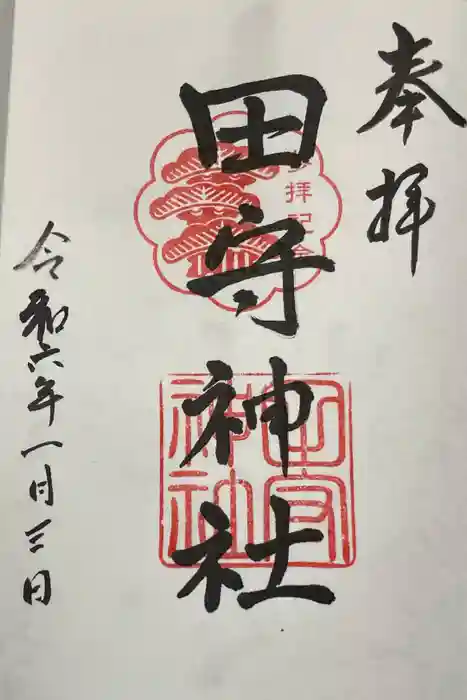 奉拝
田守神社
参拝記念
田守神社
令和六年一月三日